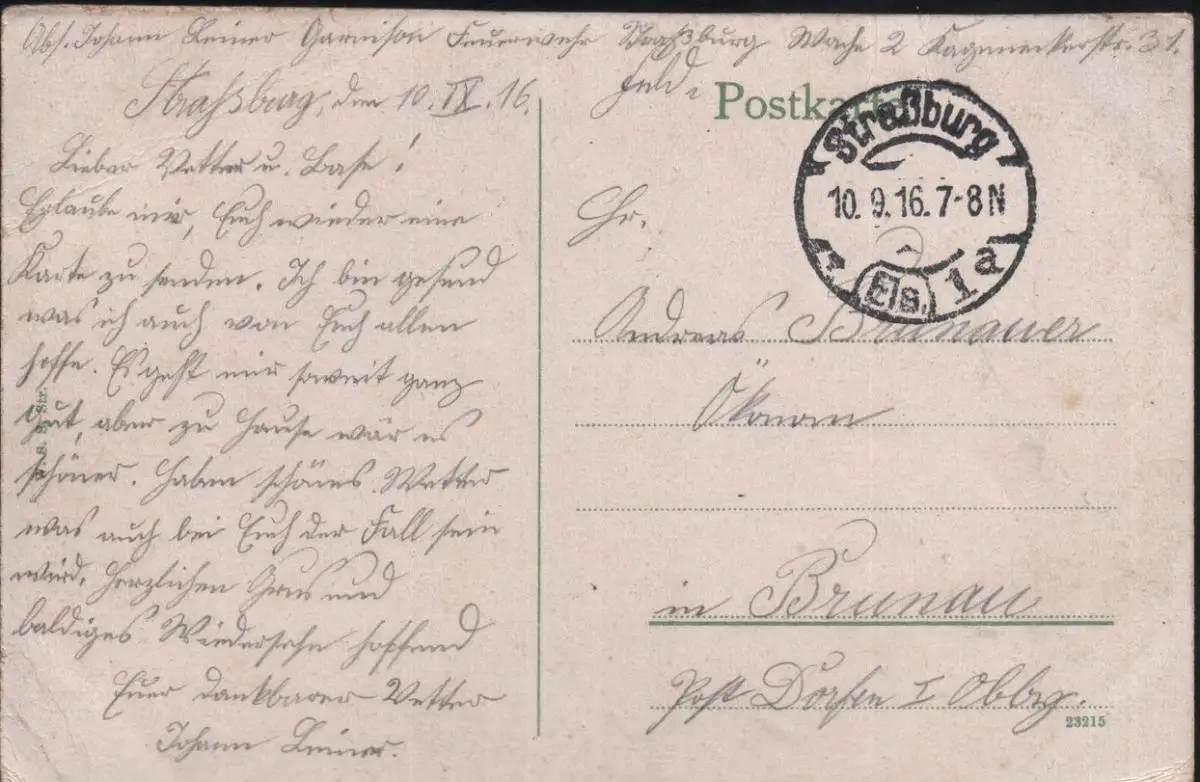 Abs. Johann Leiner Garnison Feuerwehr Straßburg Wache 2 Kageneckerstr. 31.
Straßburg, den 10. IX. 16.
Lieber Vetter u. Base!
Erlaube mir, Euch wieder eine
Karte zu senden. Ich bin gesund
was ich auch von Euch allen
hoffe. Es geht mir soweit ganz
gut, aber zu Hause wär es
schöner. Haben schönes Wetter
was auch bei Euch der Fall sein
wird. Herzlichen Grus und
baldiges Wiedersehn hoffend
Euer dankbarer Vetter
Johann Leiner.
Feld.
Postkarte
Straßburg
10.9.16.7-8N
Els. 1a
Hr.
Andreas Brunauer
Ökonom
in Brunau
Post Dorfen I Obby.
23215